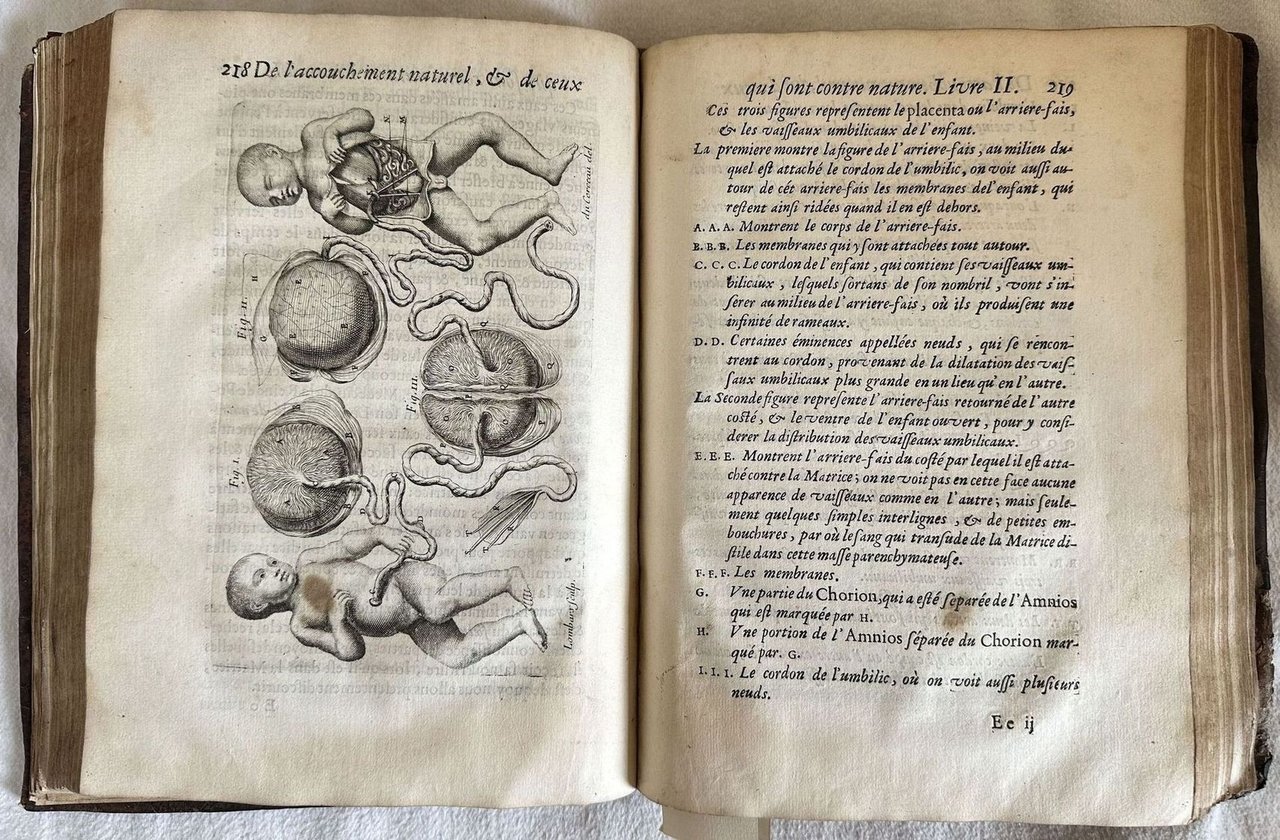 218 De l'accouchement naturel, & de ceux
N. M.
du Cerceau del.
Fig. II.
H
G
E
E
E
Fig. III.
Q
Q
P
Fig. I.
B
A
B
D
Lombart sculp.
qui ſont contre nature. Livre II. 219
Ces trois figures repreſentent le placenta ou l'arriere-fais,
& les vaiſſeaux umbilicaux de l'enfant.
La premiere montre la figure de l'arriere-fais, au milieu du-
quel eſt attaché le cordon de l'umbilic, on voit auſſi au-
tour de cét arriere-fais les membranes de l'enfant, qui
reſtent ainſi ridées quand il en eſt dehors.
A. A. A. Montrent le corps de l'arriere-fais.
B. B. B. Les membranes qui y ſont attachées tout autour.
C. C. C. Le cordon de l'enfant, qui contient ſes vaiſſeaux um-
bilicaux, leſquels ſortans de ſon nombril, vont s'in-
ſerer au milieu de l'arriere-fais, où ils produiſent une
infinité de rameaux.
D. D. Certaines éminences appellées neuds, qui ſe rencon-
trent au cordon, provenant de la dilatation des vaiſ-
ſaux umbilicaux plus grande en un lieu qu'en l'autre.
La Seconde figure repreſente l'arriere-fais retourné de l'autre
coſté, & le ventre de l'enfant ouvert, pour y conſi-
derer la diſtribution des vaiſſeaux umbilicaux.
E. E. E. Montrent l'arriere-fais du coſté par lequel il eſt atta-
ché contre la Matrice; on ne voit pas en cette face aucune
apparence de vaiſſeaux comme en l'autre; mais ſeule-
ment quelques ſimples interlignes, & de petites em-
bouchures, par où le ſang qui tranſude de la Matrice di-
ſtile dans cette maſſe parenchymateuſe.
F. F. F. Les membranes.
G. Vne partie du Chorion, qui a eſté ſeparée de l'Amnios
qui eſt marquée par H.
H. Vne portion de l'Amnios ſéparée du Chorion mar-
qué par. G.
I. I. I. Le cordon de l'umbilic, où on voit auſſi pluſieurs
neuds.
Ee ij